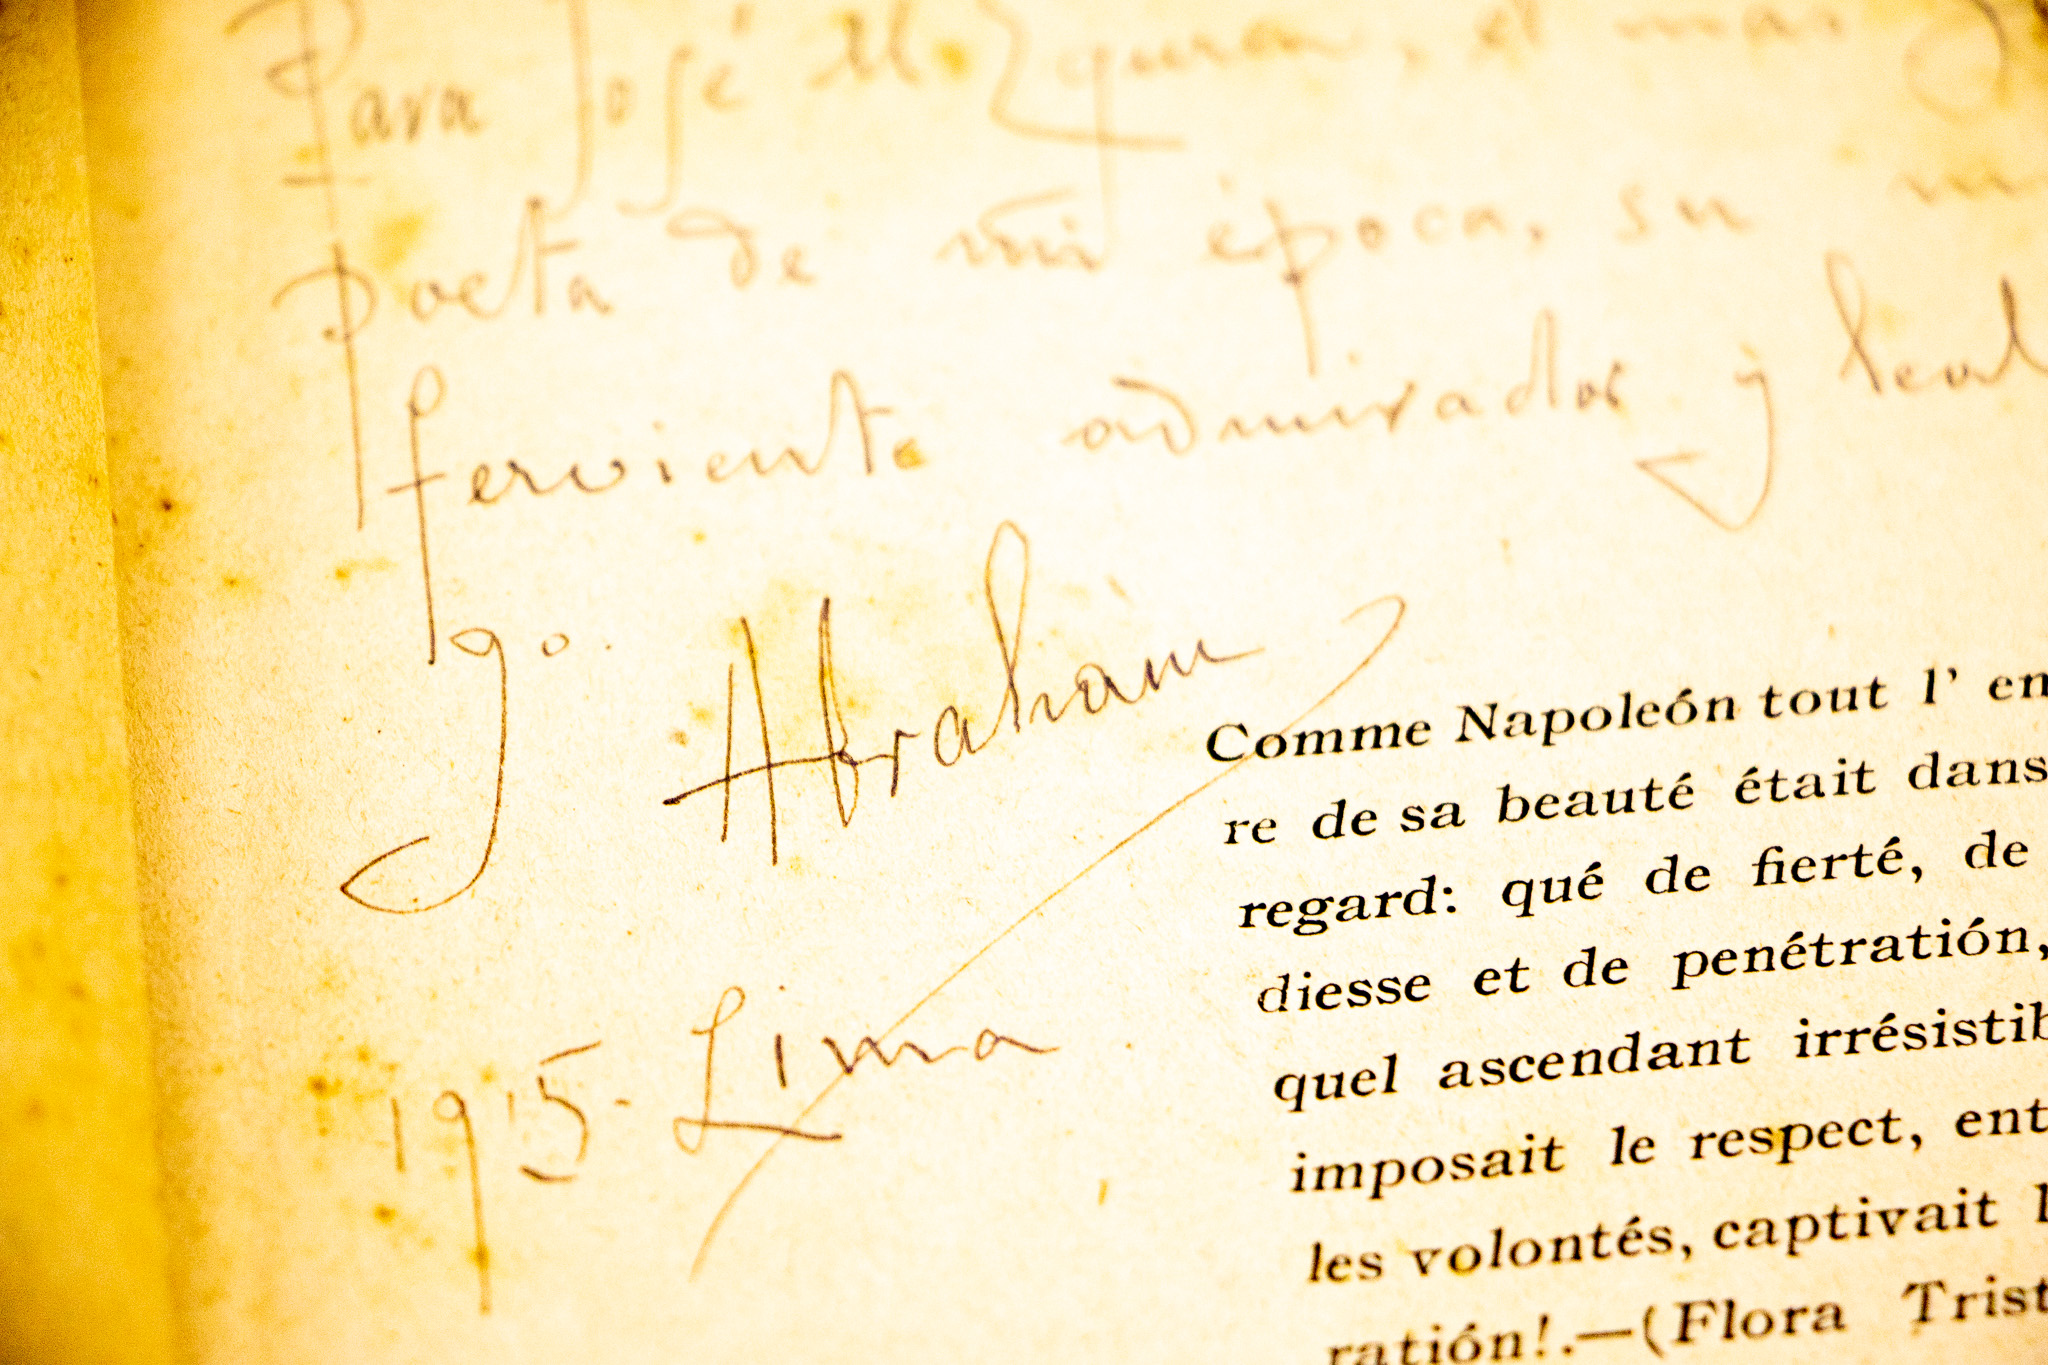 Para José M Eguren, el mas
poeta de mi época, su
ferviente admirador y leal
go. Abraham
1915-Lima
Comme Napoleón tout l' en
re de sa beauté était dans
regard: qué de fierté, de
diesse et de penétratión,
quel ascendant irrésistib
imposait le respect, ent
les volontés, captivait l
ratión!.—(Flora Trist